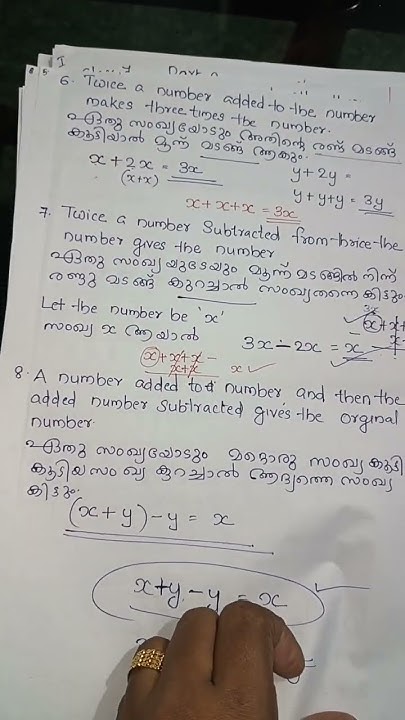 6. Twice a number added to the number
makes three times the number.
ഏതു സംഖ്യയോടും അതിന്റെ രണ്ട് മടങ്ങ്
കൂട്ടിയാൽ മൂന്ന് മടങ്ങ് ആകും.
x + 2x = 3x
(x+x)
y + 2y =
y + y + y = 3y
x + x + x = 3x
7. Twice a number Subtracted from thrice the
number gives the number
ഏതു സംഖ്യയുടേയും മൂന്ന് മടങ്ങിൽ നിന്ന്
രണ്ടു മടങ്ങ് കുറച്ചാൽ സംഖ്യതന്നെ കിട്ടും.
Let the number be 'x'
സംഖ്യ x ആയാൽ
3x - 2x = x
3x
x + x + x -
x + x
x
8. A number added to a number, and then the
added number Subtracted gives the orginal
number.
ഏതു സംഖ്യയോടും മറ്റൊരു സംഖ്യ കൂട്ടി
കൂട്ടിയ സംഖ്യ കുറച്ചാൽ ആദ്യത്തെ സംഖ്യ
കിട്ടും.
(x + y) - y = x
x + y - y = x